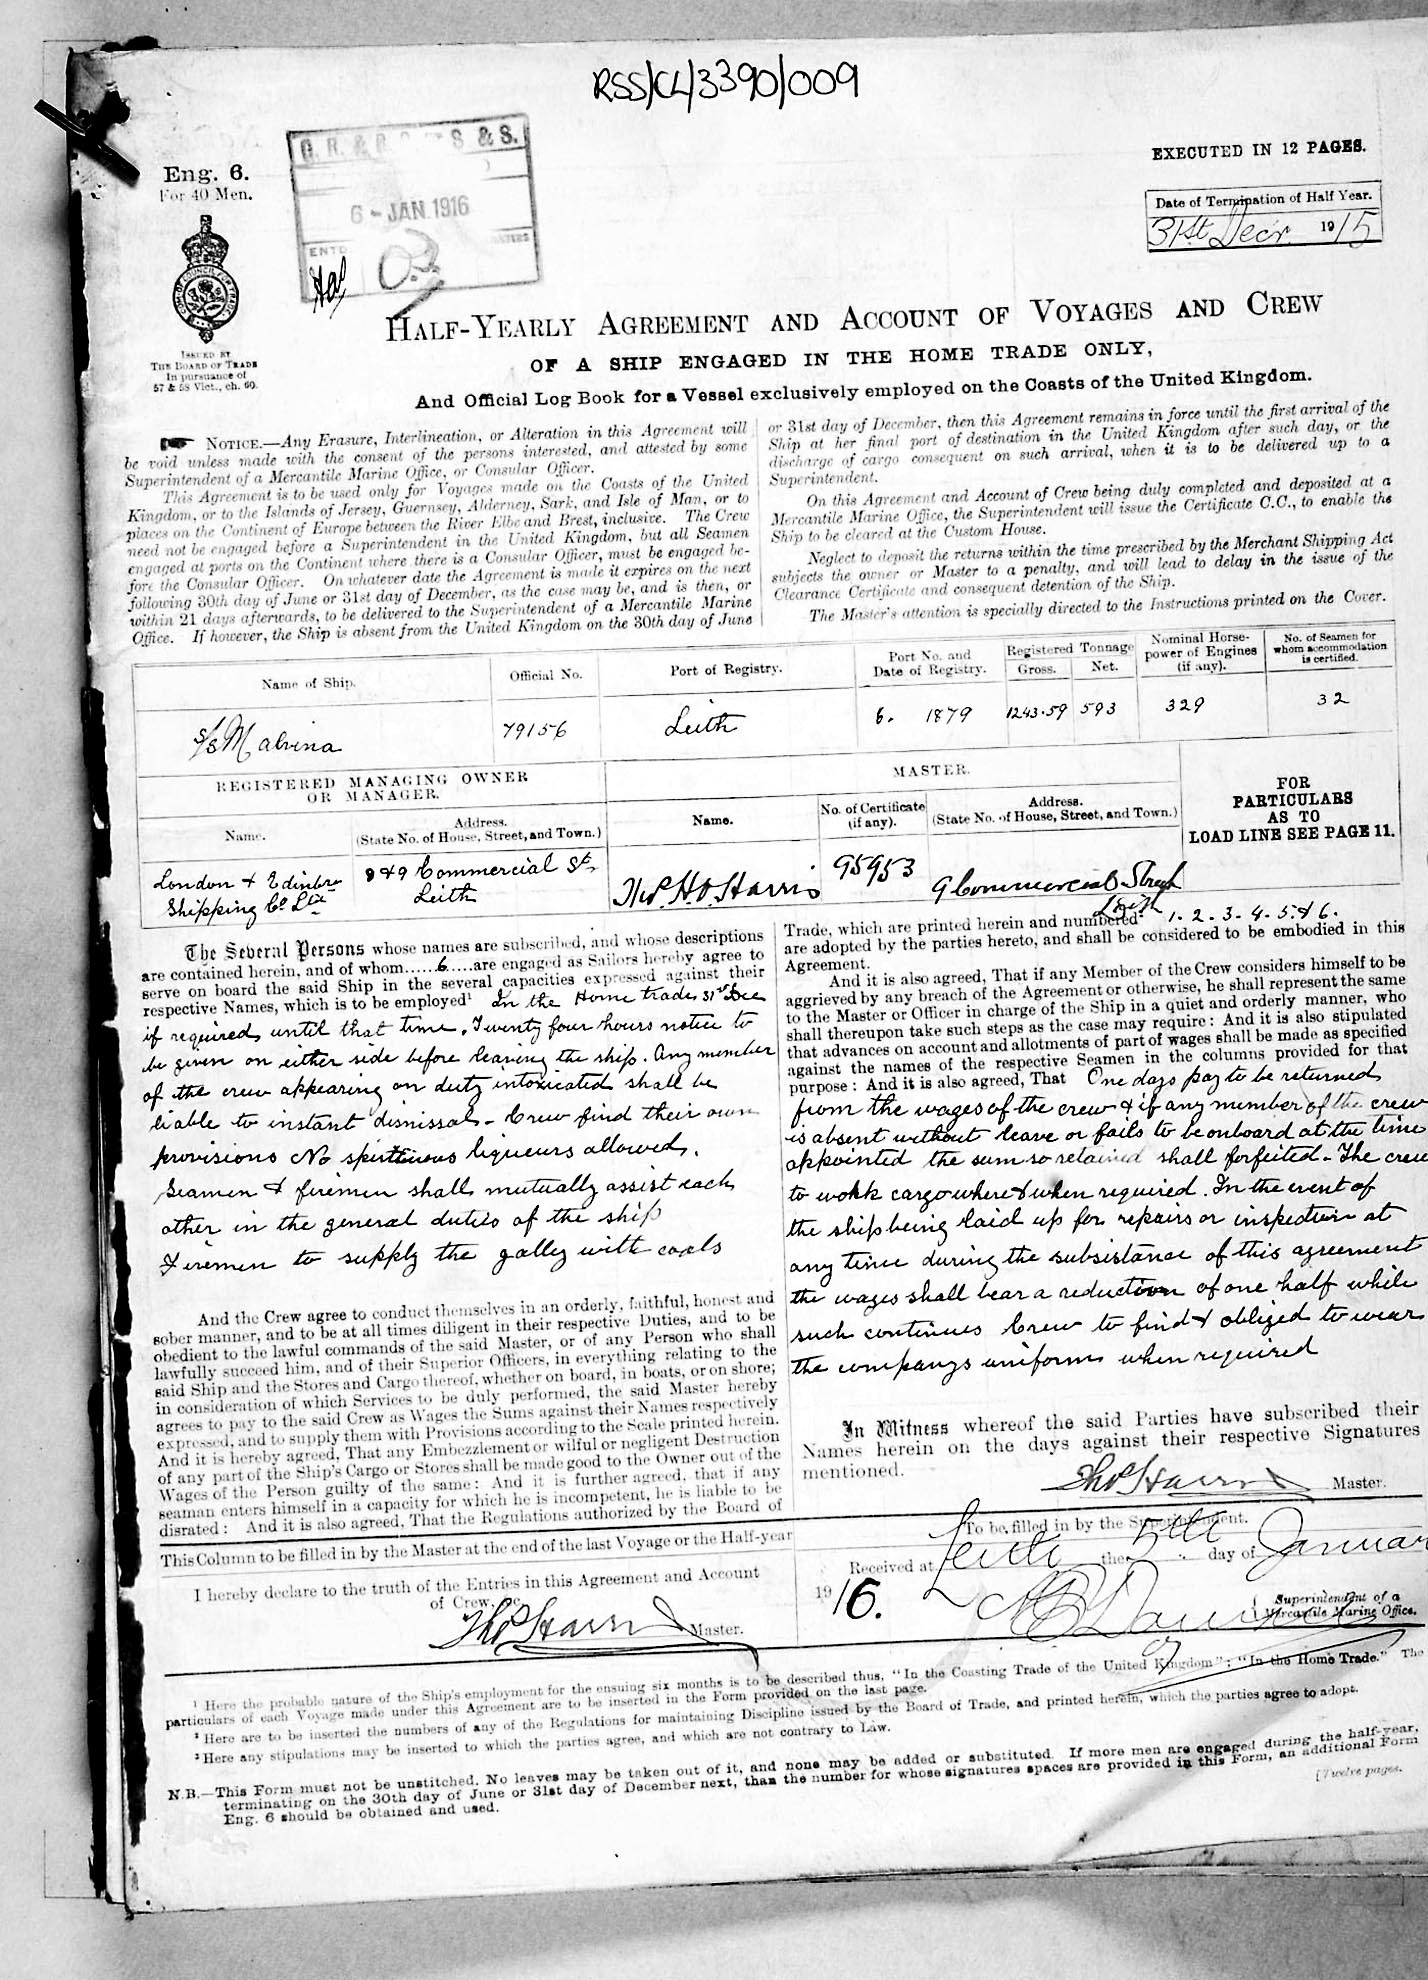 RSS/CL/3390/009
EXECUTED IN 12 PAGES.
Eng. 6.
For 40 Men.
& S.
6 - JAN. 1916
Date of Termination of Half Year.
31st Decr 1915
ISSUED BY
THE BOARD OF TRADE
In pursuance of
57 & 58 Vict., ch. 60.
HALF-YEARLY AGREEMENT AND ACCOUNT OF VOYAGES AND CREW
OF A SHIP ENGAGED IN THE HOME TRADE ONLY,
And Official Log Book for a Vessel exclusively employed on the Coasts of the United Kingdom.
NOTICE.—Any Erasure, Interlineation, or Alteration in this Agreement will
be void unless made with the consent of the persons interested, and attested by some
Superintendent of a Mercantile Marine Office, or Consular Officer.
This Agreement is to be used only for Voyages made on the Coasts of the United
Kingdom, or to the Islands of Jersey, Guernsey, Alderney, Sark, and Isle of Man, or to
places on the Continent of Europe between the River Elbe and Brest, inclusive. The Crew
need not be engaged before a Superintendent in the United Kingdom, but all Seamen
engaged at ports on the Continent where there is a Consular Officer, must be engaged be-
fore the Consular Officer. On whatever date the Agreement is made it expires on the next
following 30th day of June or 31st day of December, as the case may be, and is then, or
within 21 days afterwards, to be delivered to the Superintendent of a Mercantile Marine
Office. If however, the Ship is absent from the United Kingdom on the 30th day of June
or 31st day of December, then this Agreement remains in force until the first arrival of the
Ship at her final port of destination in the United Kingdom after such day, or the
discharge of cargo consequent on such arrival, when it is to be delivered up to a
Superintendent.
On this Agreement and Account of Crew being duly completed and deposited at a
Mercantile Marine Office, the Superintendent will issue the Certificate C.C., to enable the
Ship to be cleared at the Custom House.
Neglect to deposit the returns within the time prescribed by the Merchant Shipping Act
subjects the owner or Master to a penalty, and will lead to delay in the issue of the
Clearance Certificate and consequent detention of the Ship.
The Master's attention is specially directed to the Instructions printed on the Cover.
Name of Ship.
Official No.
Port of Registry.
Port No. and
Date of Registry.
Registered Tonnage
Gross.
Net.
Nominal Horse-
power of Engines
(if any).
No. of Seamen for
whom accommodation
is certified.
s/s Malvina
79156
Leith
6. 1879
1243.59
593
329
32
REGISTERED MANAGING OWNER
OR MANAGER.
MASTER.
FOR
PARTICULARS
AS TO
LOAD LINE SEE PAGE 11.
Name.
Address.
(State No. of House, Street, and Town.)
Name.
No. of Certificate
(if any).
Address.
(State No. of House, Street, and Town.)
London & Edinbro
Shipping Co Ltd
8 & 9 Commercial St,
Leith
Thos. H. O. Harris
95953
9 Commercial Street
Leith
The Several Persons whose names are subscribed, and whose descriptions
are contained herein, and of whom......6.....are engaged as Sailors hereby agree to
serve on board the said Ship in the several capacities expressed against their
respective Names, which is to be employed¹ In the Home trades 31st Dec
if required until that time. Twenty four hours notice to
be given on either side before leaving the ship. Any member
of the crew appearing on duty intoxicated shall be
liable to instant dismissal - Crew find their own
provisions No spirituous liqueurs allowed.
Seamen & firemen shall mutually assist each
other in the general duties of the ship
Firemen to supply the galley with coals
And the Crew agree to conduct themselves in an orderly, faithful, honest and
sober manner, and to be at all times diligent in their respective Duties, and to be
obedient to the lawful commands of the said Master, or of any Person who shall
lawfully succeed him, and of their Superior Officers, in everything relating to the
said Ship and the Stores and Cargo thereof, whether on board, in boats, or on shore;
in consideration of which Services to be duly performed, the said Master hereby
agrees to pay to the said Crew as Wages the Sums against their Names respectively
expressed, and to supply them with Provisions according to the Scale printed herein.
And it is hereby agreed, That any Embezzlement or wilful or negligent Destruction
of any part of the Ship's Cargo or Stores shall be made good to the Owner out of the
Wages of the Person guilty of the same: And it is further agreed, that if any
seaman enters himself in a capacity for which he is incompetent, he is liable to be
disrated: And it is also agreed, That the Regulations authorized by the Board of
Trade, which are printed herein and numbered² 1. 2. 3. 4. 5. & 6.
are adopted by the parties hereto, and shall be considered to be embodied in this
Agreement.
And it is also agreed, That if any Member of the Crew considers himself to be
aggrieved by any breach of the Agreement or otherwise, he shall represent the same
to the Master or Officer in charge of the Ship in a quiet and orderly manner, who
shall thereupon take such steps as the case may require: And it is also stipulated
that advances on account and allotments of part of wages shall be made as specified
against the names of the respective Seamen in the columns provided for that
purpose: And it is also agreed, That One days pay to be returned
from the wages of the crew & if any member of the crew
is absent without leave or fails to be onboard at the time
appointed the sum so retained shall forfeited - The crew
to work cargo where & when required. In the event of
the ship being laid up for repairs or inspection at
any time during the subsistance of this agreement
the wages shall bear a reduction of one half while
such continues Crew to find & obliged to wear
the companys uniform when required
In Witness whereof the said Parties have subscribed their
Names herein on the days against their respective Signatures
mentioned.
Thos Harris Master.
This Column to be filled in by the Master at the end of the last Voyage or the Half-year
I hereby declare to the truth of the Entries in this Agreement and Account
of Crew, &c.
Thos Harris Master.
To be filled in by the Superintendent.
Received at Leith the 5th day of January
1916.
Superintendent of a
Mercantile Marine Office.
¹ Here the probable nature of the Ship's employment for the ensuing six months is to be described thus, "In the Coasting Trade of the United Kingdom"; "In the Home Trade." The
particulars of each Voyage made under this Agreement are to be inserted in the Form provided on the last page.
² Here are to be inserted the numbers of any of the Regulations for maintaining Discipline issued by the Board of Trade, and printed herein, which the parties agree to adopt.
³ Here any stipulations may be inserted to which the parties agree, and which are not contrary to Law.
N.B.—This Form must not be unstitched. No leaves may be taken out of it, and none may be added or substituted. If more men are engaged during the half-year,
terminating on the 30th day of June or 31st day of December next, than the number for whose signatures spaces are provided in this Form, an additional Form
Eng. 6 should be obtained and used.
[Twelve pages.